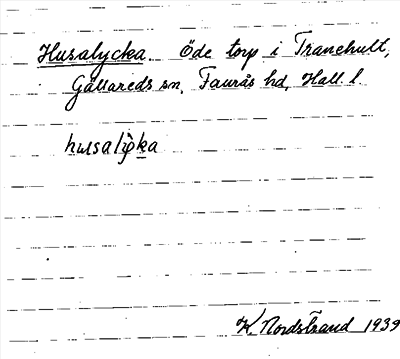 Husalycka. Öde torp i Tranehult,
Gällareds sn, Faurås hd, Hall. l.
husalỳka
K. Nordstrand 1939